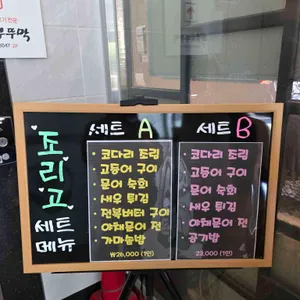 도리고
세트
메뉴
세트 A
• 코다리 조림
• 고등어 구이
• 문어 숙회
• 새우 튀김
• 전복버터 구이
• 야채문어 전
• 가마솥밥
₩26,000 (1인)
세트 B
• 코다리 조림
• 고등어 구이
• 문어 숙회
• 새우 튀김
• 야채문어 전
• 공기밥
23,000 (1인)